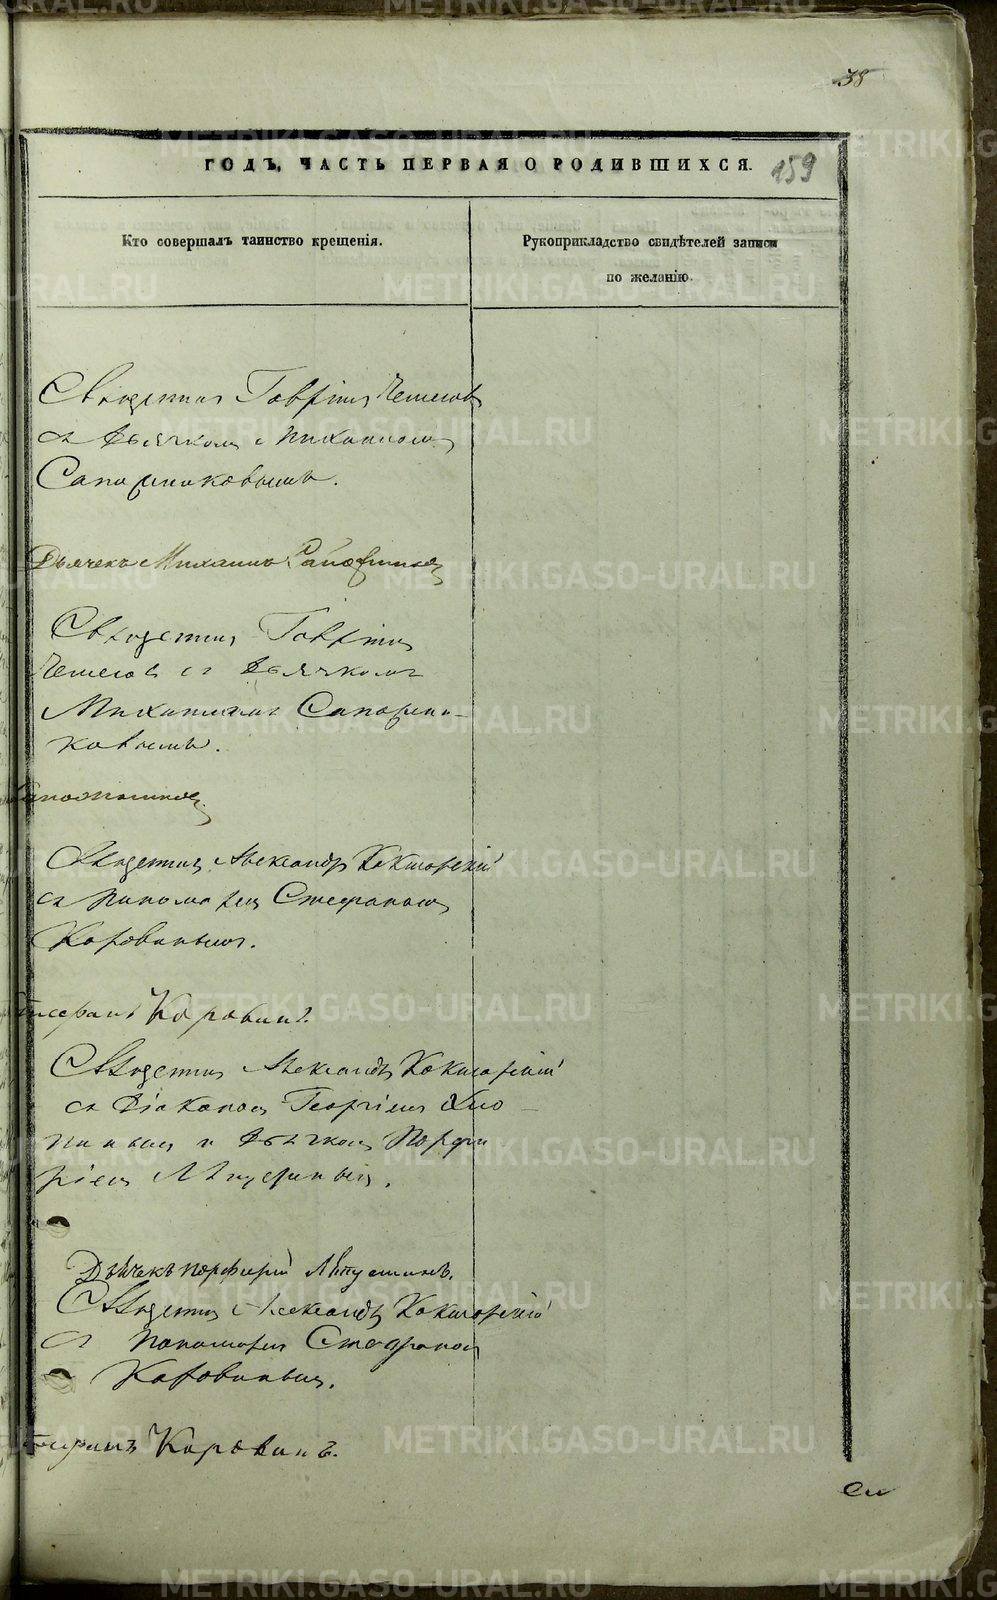 38
ГОДЪ, ЧАСТЬ ПЕРВАЯ О РОДИВШИХСЯ.
159
Кто совершалъ таинство крещенія.
Рукоприкладство свидѣтелей записи
по желанію.
Священникъ Гавріилъ
съ Дьячкомъ Михаиломъ
Сапожниковымъ.
Дьячекъ Михаилъ Сапожниковъ
Священникъ Гавріилъ
съ Дьячкомъ
Михаиломъ Сапожни-
ковымъ.
Сапожниковъ
Священникъ Александръ Кокшарскій
съ Пономаремъ Стефаномъ
Коровинымъ.
Стефанъ Коровинъ.
Священникъ Александръ Кокшарскій
съ Діакономъ Георгіемъ
и Дьячкомъ Порфи
ріемъ
Дьячекъ Порфирій
Священникъ Александръ Кокшарскій
съ Пономаремъ Стефаномъ
Коровинымъ.
Стефанъ Коровинъ.
METRIKI.GASO-URAL.RU